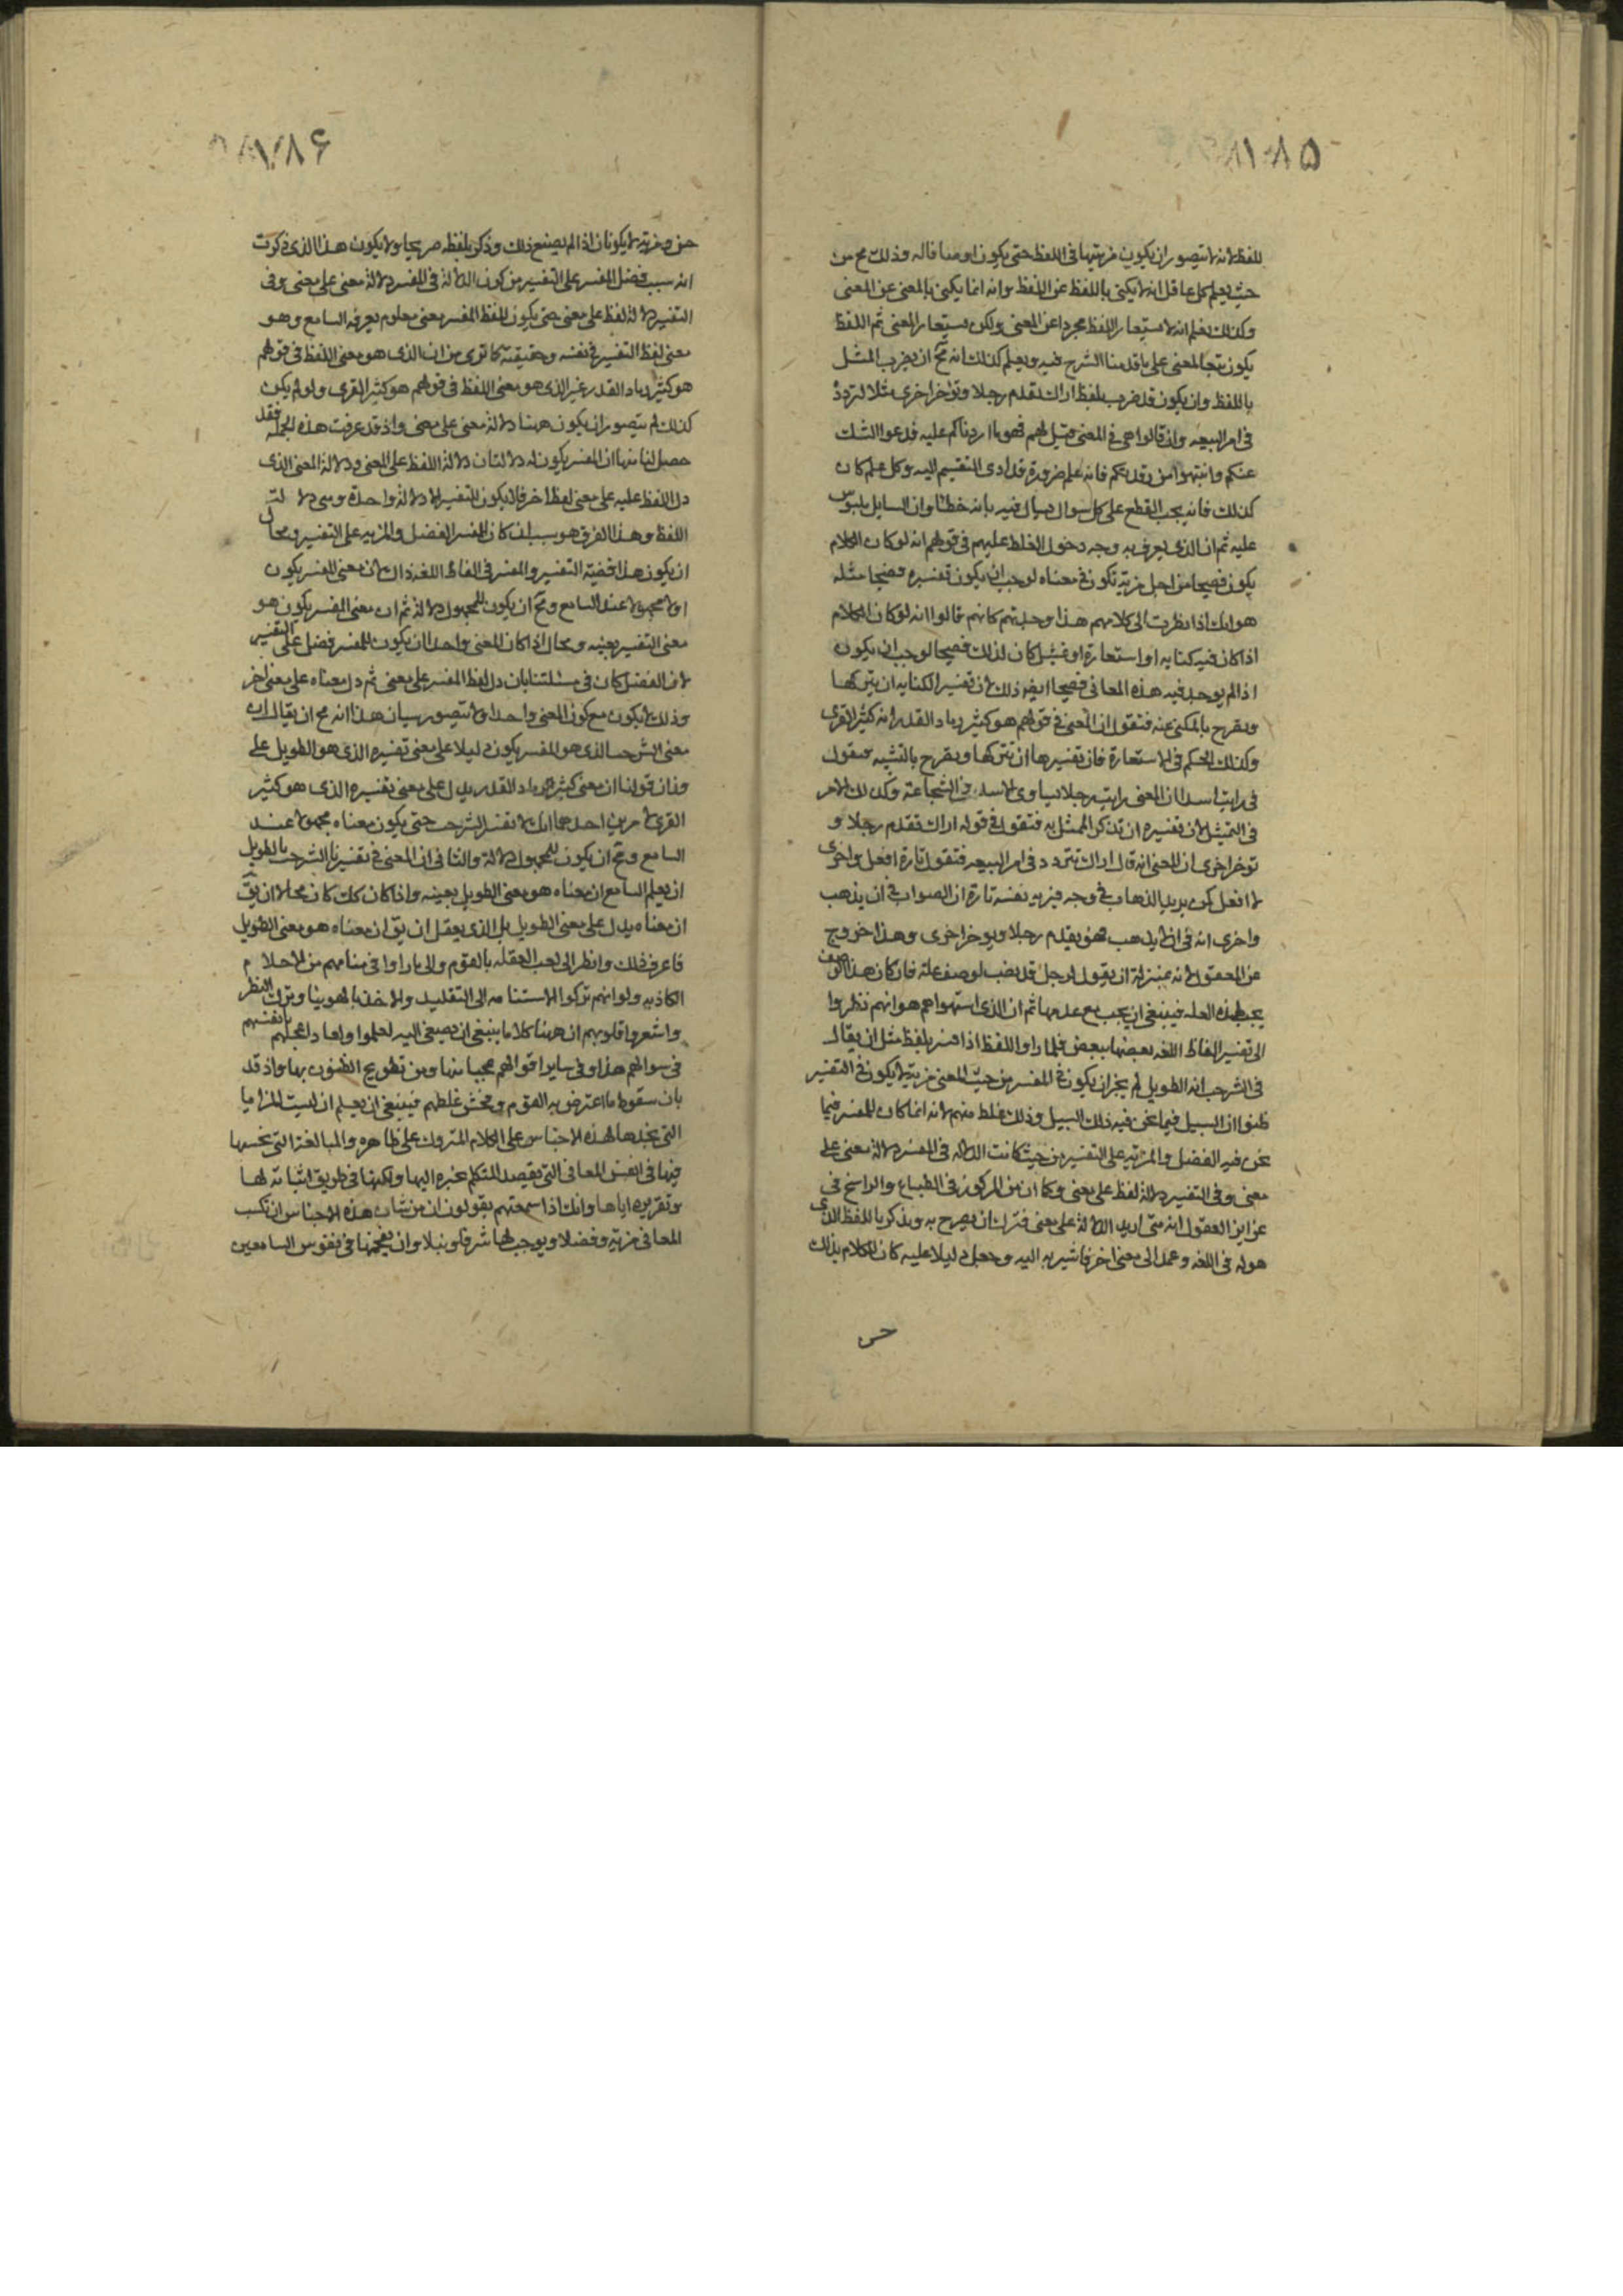 ۱۸۵
للفظ لانه لا يتصور ان يكون مزيتها فى اللفظ حتى يكون اوصافا له وذلك مح من
حيث يعلم كل عاقل انه لا يكنى باللفظ عن اللفظ وانه انما يكنى بالمعنى عن المعنى
وكذلك يعلم انه لا يستعار اللفظ مجردا عن المعنى ولكن يستعار المعنى ثم اللفظ
يكون تبعا لمعنى على ما قدمنا الشرح فيه ويعلم كذلك انه مح ان يضرب المثل
باللفظ وان يكون قد ضرب بلفظ اراك تقدم رجلا وتوخر اخرى مثلا لتردده
فى امر البيعه وان قالوا هى فى المعنى قيل لهم فهو ما اردناكم عليه فدعوا الشك
عنكم وانتبهوا من رقدتكم فانه علم ضرورة قد ادى التقسيم اليه وكل علم كان
كذلك فانه يجب القطع على كل سوال يسال فيه بانه خطأ وان السايل ملبوس
عليه ثم ان الذى يعرف به وجه دخول الغلط عليهم فى قولهم انه لو كان الكلام
يكون فصيحا من اجل مزية تكون فى معناه لوجب ان يكون تفسيره فصيحا مثله
هو انك اذا نظرت الى كلامهم هذا وجدتهم كانهم قالوا انه لو كان الكلام
اذا كان فيه كنايه او استعارة او تمثيل كان لذلك فصيحا لوجب ان يكون
اذا لم يوجد فيه هذه المعانى فصيحا ايضا ذلك لان تفسير الكنايه ان يتركها
ويصرح بالمكنى عنه فتقول ان المعنى فى قولهم هو كثير رماد القدر انه كثير القرى
وكذلك الحكم فى الاستعارة فان تفسيرها ان تتركها ويصرح بالتشبيه فتقول
فى رايت اسدا ان المعنى رايت رجلا يساوى الاسد فى الشجاعة وكذلك الامر
فى التمثيل لان تفسيره ان تذكر الممثل به فتقول فى قوله اراك تقدم رجلا و
توخر اخرى ان المعنى انه قال اراك تتردد فى امر البيعه فتقول تارة افعل واخرى
لا افعل كمن يريد الذهاب فى وجه فيريه نفسه تارة ان الصواب فى ان يذهب
واخرى انه فى ان لا يذهب فهو يقدم رجلا ويوخر اخرى وهذا خروج
عن المعقول لانه بمنزلة ان يقول لرجل قد نصب لوصف علة فان كان هذا الوصف
يجب لهذه العله فينبغى ان يجب مع عدمها ثم ان الذى استهواهم هو انهم نظروا
الى تفسير الفاظ اللغه بعضها ببعض فلما راوا اللفظ اذا فسر بلفظ مثل ان يقال
فى الشرجب انه الطويل لم يجز ان يكون فى المفسر من حيث المعنى مزية لا يكون فى التفسير
ظنوا ان السبيل فيما نحن فيه ذلك السبيل وذلك غلط منهم لانه انما كان للمفسر فيما
نحن فيه الفضل والمزيه على التفسير من حيث كانت الدلاله فى المفسر دلالة معنى على
معنى وفى التفسير دلالة لفظ على معنى وكان من المركوز فى الطباع والراسخ فى
غراير العقول انه متى اريد الدلالة على معنى فترك ان يصرح به ويذكر باللفظ الذى
هو له فى اللغه وعمد الى معنى اخر فاشير به اليه وجعل دليلا عليه كان للكلام بذلك
حسن
۱۸۶
حسن ومزية لا يكونان اذا لم يصنع ذلك وذكر بلفظه صريحا ولا يكون هذا الذى ذكرت
انه سبب فضل المفسر على التفسير من كون الدلالة فى المفسر دلالة معنى على معنى وفى
التفسير دلالة لفظ على معنى حتى يكون للفظ المفسر معنى معلوم يعرفه السامع وهو
معنى لفظ التفسير فى نفسه وحقيقته كما ترى من ان الذى هو معنى اللفظ فى قولهم
هو كثير رماد القدر غير الذى هو معنى اللفظ فى قولهم هو كثير القرى ولو لم يكن
كذلك لم يتصور ان يكون ههنا دلالة معنى على معنى واذ قد عرفت هذه الجمله فقد
حصل لنا منها ان المفسر يكون له دلالتان دلالة اللفظ على المعنى ودلالة المعنى الذى
دل اللفظ عليه على معنى لفظ اخر فلا يكون للتفسير الا دلالة واحدة وهى دلالة
اللفظ وهذا الفرق هو سبب ان كان للمفسر الفضل والمزيه على التفسير ومحال
ان يكون هذا قضية التفسير والمفسر فى الفاظ اللغه ذاك لان معنى المفسر يكون
مجهولا عند السامع ومح ان يكون للمجهول دلالة ثم ان معنى المفسر يكون هو
معنى التفسير بعينه ومحال اذا كان المعنى واحدا ان يكون للمفسر فضل على التفسير
لان الفضل كان فى مسئلتنا بان دل لفظ المفسر على معنى ثم دل معناه على معنى اخر
وذلك لا يكون مع كون المعنى واحدا ولا يتصور بيان هذا انه مح ان يقال ان
معنى الشرجب الذى هو المفسر يكون دليلا على معنى تفسيره الذى هو الطويل على
وزان قولنا ان معنى كثير رماد القدر يدل على معنى تفسيره الذى هو كثير
القرى لامرين احدهما انك لا تفسر الشرجب حتى يكون معناه مجهولا عند
السامع ومح ان يكون للمجهول دلالة والثانى ان المعنى فى تفسيرنا الشرجب بالطويل
ان يعلم السامع ان معناه هو معنى الطويل بعينه واذا كان كك كان محالا ان يق
ان معناه يدل على معنى الطويل بل الذى يعقل ان يق ان معناه هو معنى الطويل
فاعرف ذلك وانظر الى لعب الغفله بالقوم والى ما راوا فى منامهم من الاحلام
الكاذبه ولو انهم تركوا الاستنامه الى التقليد والاخذ بالهوينا وترك النظر
واشعروا قلوبهم ان ههنا كلاما ينبغى ان يصغى اليه لعلموا ولعاد اعجابهم بانفسهم
فى سوالهم هذا وفى ساير اقوالهم عجبا منها ومن تطويح الظنون بها واذ قد
بان سقوط ما اعترض به القوم وفحش غلطهم فينبغى ان يعلم ان ليست المزايا
التى تجدها لهذه الاجناس على الكلام المتروك على ظاهره والمبالغة التى تحسها
فيها فى انفس المعانى التى يقصد المتكلم بخبره اليها ولكنها فى طريق اثباته لها
وتقريره اياها وانك اذا سمعتهم يقولون ان من شان هذه الاجناس ان تكسب
المعانى مزية وفضلا ويوجب لها شرفا ونبلا وان يفخمها فى نفوس السامعين